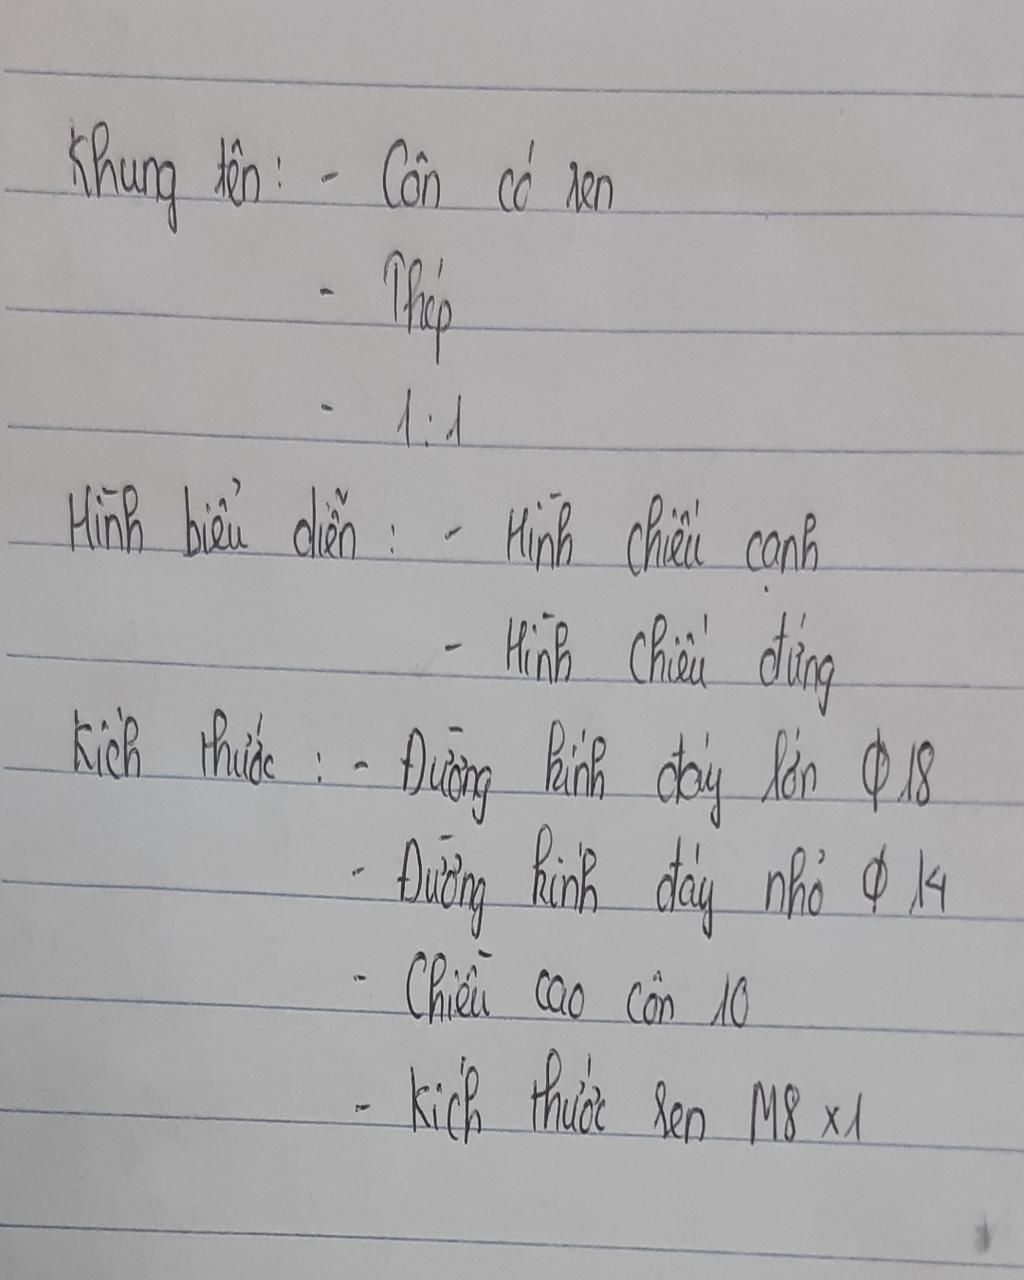 Khung tên: - Côn có ren
- Thép
- 1:1
Hình biểu diễn : - Hình chiếu cạnh
- Hình chiếu đứng
Kích thước : - Đường kính đáy lớn ϕ 18
- Đường kính đáy nhỏ ϕ 14
- Chiều cao côn 10
- Kích thước ren M8 x1